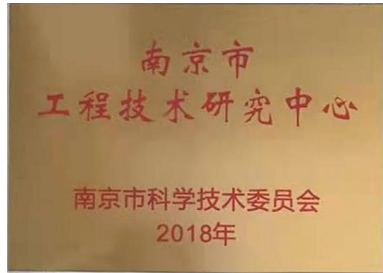 南京市
工程技术研究中心
南京市科学技术委员会
2018年